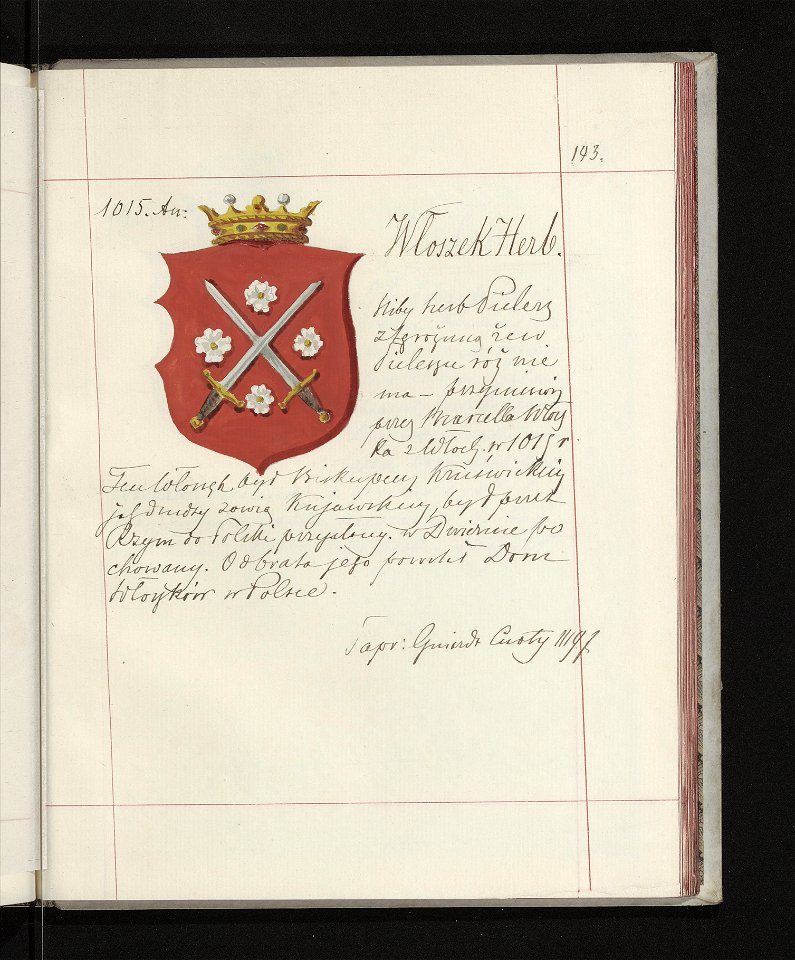 143.
1015. An:
Włoszek Herb.
Niby herb Pielesz
z tą różnicą że w
Pieleszu róż nie
ma – przyniesiony
przez Marcella Włosz
ka z Włoch. w 1015 r
Ten był Biskupem Kruświckim
jak drudzy zowią Kujawskim, był przez
Rzym do Polski przysłany. w po
chowany. Od brata jego powstał Dom
Włoszków w Polsce.
Papr: Gniazdo Cnoty